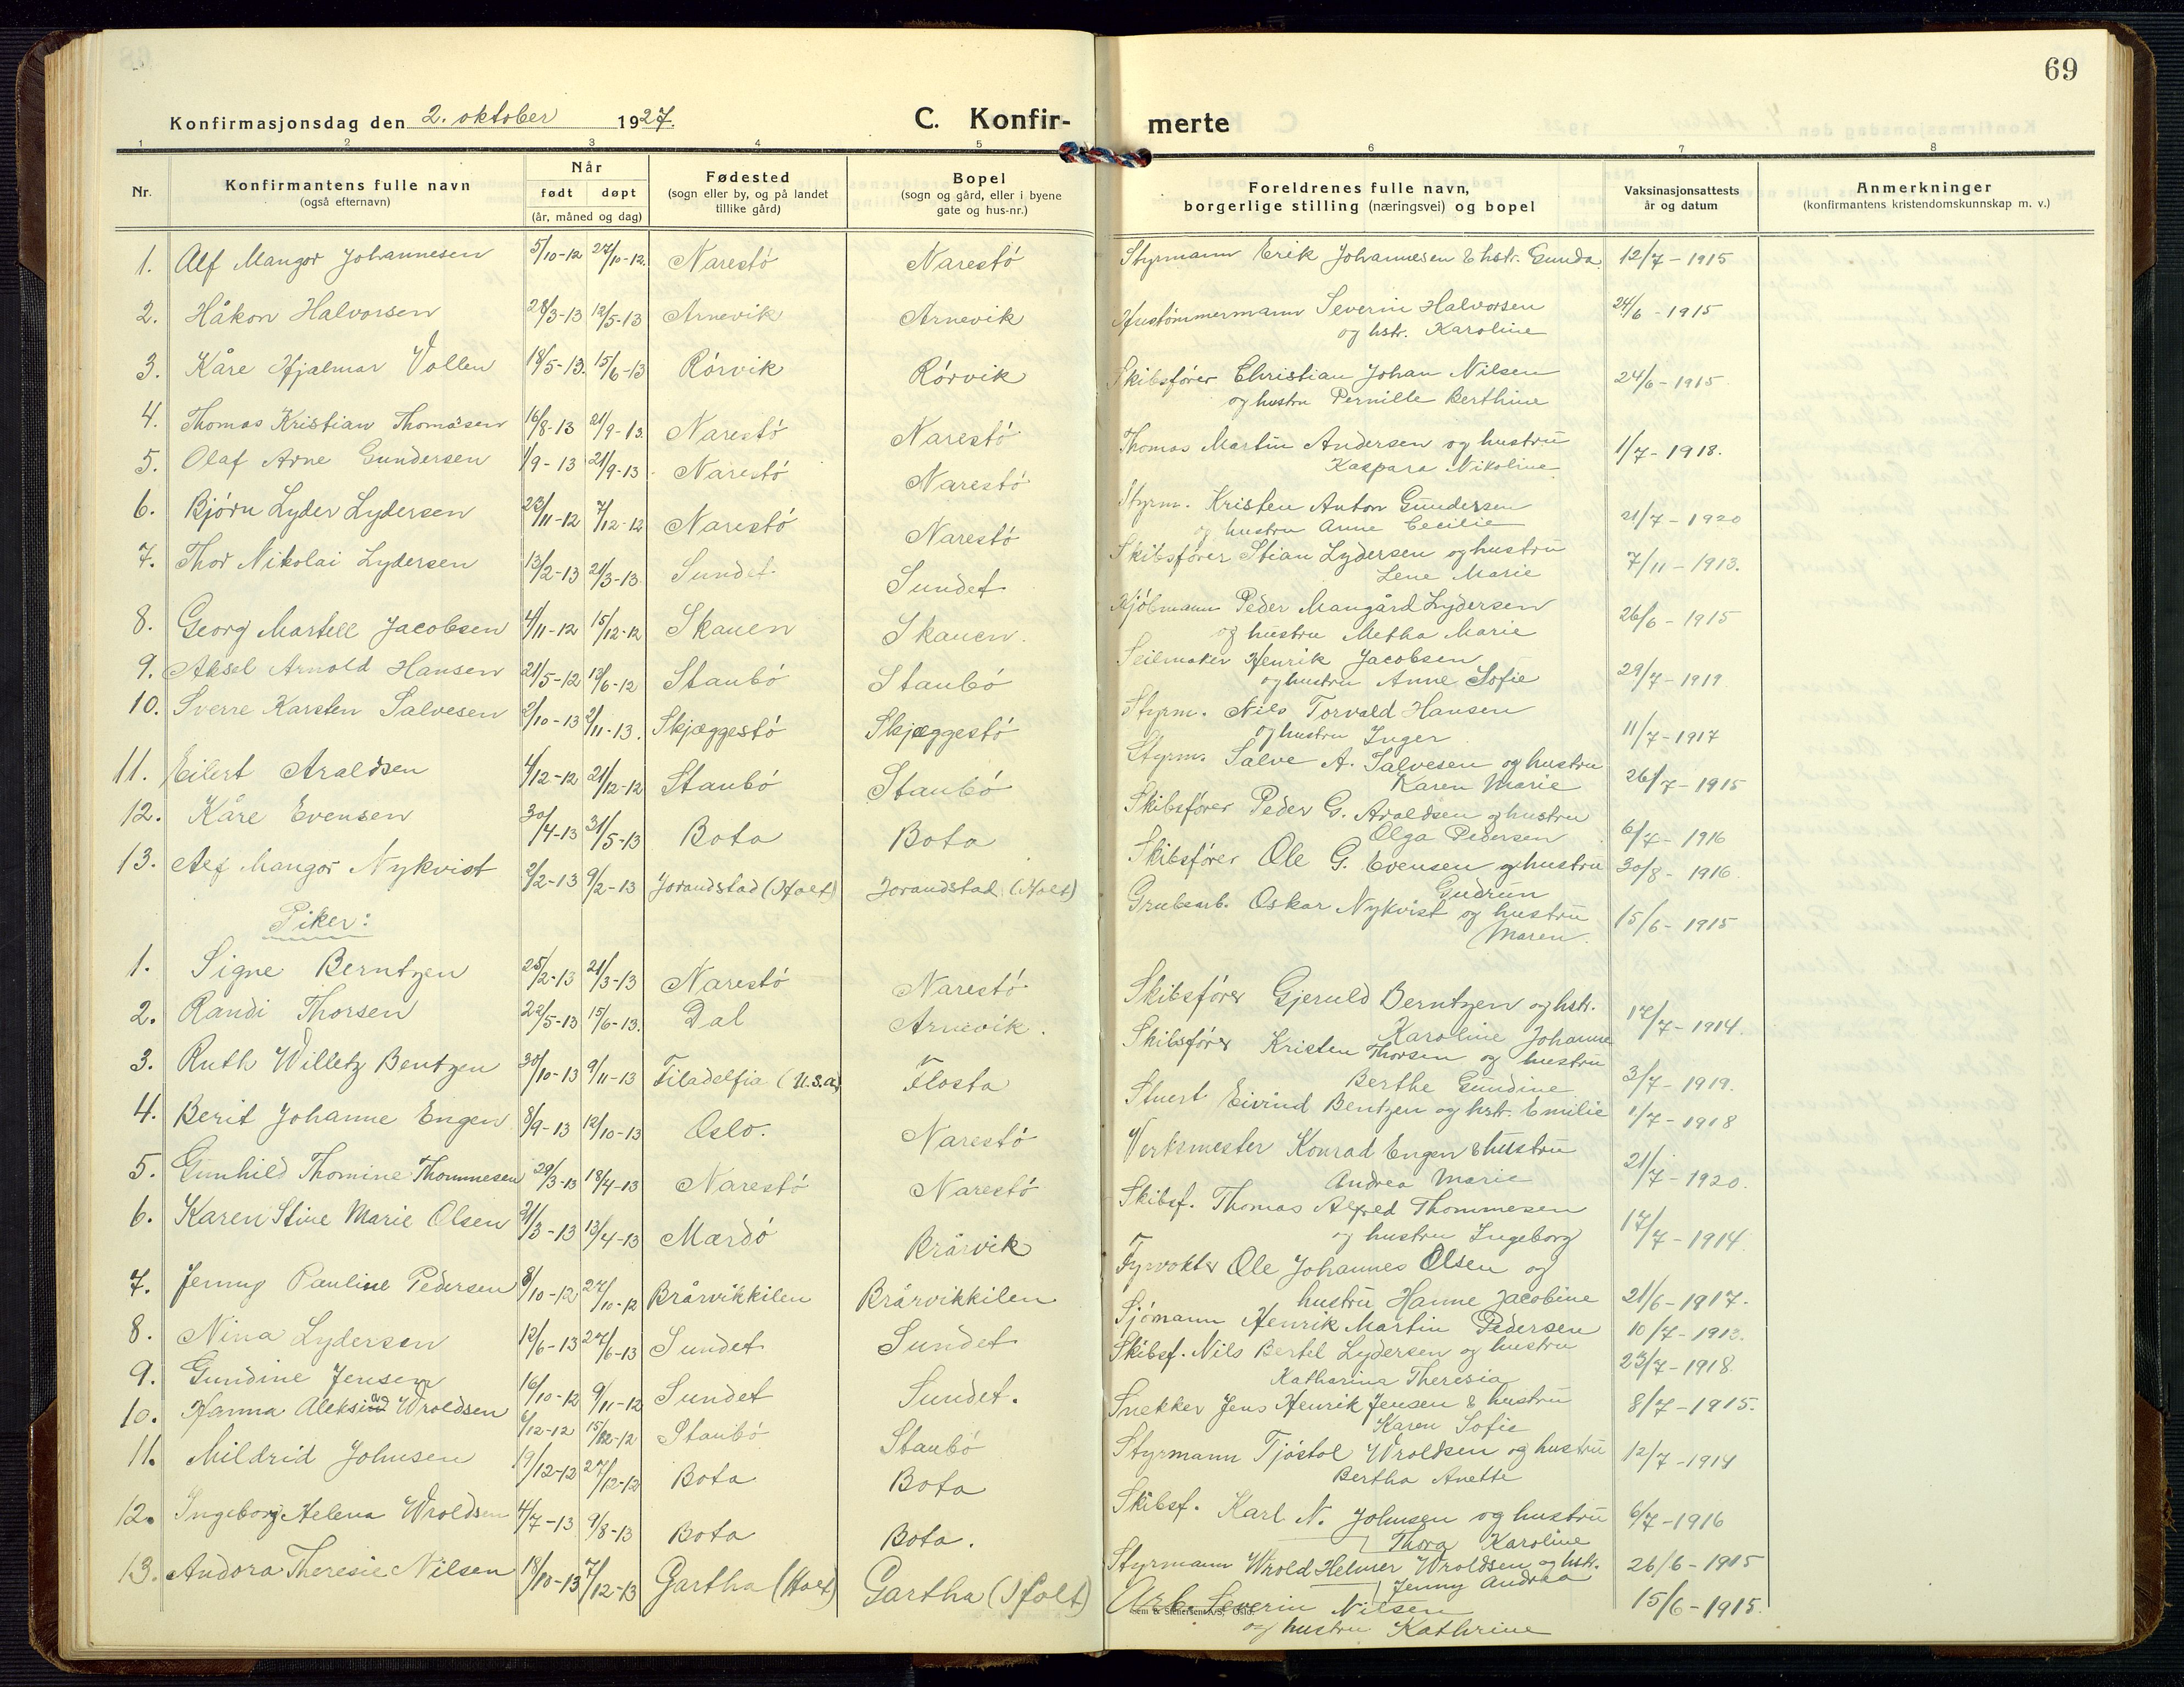 69
Konfirmasjonsdag den 2. oktober 1927. C. Konfir- merte
1 2 3 4 5 6 7 8
Nr. Konfirmantens fulle navn (også efternavn) Når født døpt (år, måned og dag) Fødested (sogn eller by, og på landet tillike gård) Bopel (sogn og gård, eller i byene gate og hus-nr.) Foreldrenes fulle navn, borgerlige stilling (næringsvei) og bopel Vaksinasjonsattests år og datum Anmerkninger (konfirmantens kristendomskunnskap m. v.)
1. Alf Mangor Johannesen 5/10-12 27/10-12. Narestö Narestö Styrmann Erik Johannesen & hstr. Gunda. 12/7-1915
2. Håkon Halvorsen 28/3-13 12/5-13 Arnevik Arnevik Hustömmermann Severin Halvorsen og hstr. Karoline 24/6-1915
3. Kåre Hjalmar Vollen 18/5-13. 15/6-13 Rörvik Rörvik Skibsförer Christian Johan Nilsen og hustru Pernille Berthine 24/6-1915.
4. Thomas Kristian Thomasen 16/8-13 21/9-13. Narestö Narestö Thomas Martin Andersen og hustru Kaspara Nikoline 1/7-1918.
5. Olaf Arne Gundersen 1/9-13 21/9-13. Narestö Narestö Styrm. Kristen Anton Gundersen og hustru Anne Cecilie 21/7-1920
6. Björn Lyder Lydersen 23/11-12 7/12-12 Narestö Narestö Skibsförer Stian Lydersen og hustru Lene Marie 7/11-1913.
7. Thor Nikolai Lydersen 13/2-13 21/3-13 Sundet Sundet Kjöbmann Peder Mangård Lydersen og hustru Metha Marie 26/6-1915
8. Georg Martell Jacobsen 4/11-12 15/12-12 Skauen Skauen. Seilmaker Henrik Jacobsen og hustru Anne Sofie 29/7-1919
9. Aksel Arnold Hansen 21/5-12 /6-12 Staubö Staubö Styrm. Nils Torvald Hansen og hustru Inger 11/7-1917
10. Sverre Karsten Salvesen 2/10-13 2/11-13. Skjæggestö Skjæggestö Styrm. Salve A. Salvesen og hustru Karen Marie 26/7-1915
11. Eilert Araldsen 4/12-12 21/12-12 Staubö Staubö Skibsförer Peder G. Araldsen og hustru Olga Pedersen 6/7-1916
12. Kåre Evensen 30/4-13 31/5-13 Bota Bota Skibsförer Ole G. Evensen og hustru Gudrun 30/8-1916.
13. Alf Mangor Nykvist 2/2-13 9/2-13 Jorandstad (Holt) Jorandstad (Holt) Grubearb. Oskar Nykvist og hustru Maren. 15/6-1915
Piker:
1. Signe Berntzen 25/2-13 21/3-13 Narestö Narestö Skibsförer Gjeruld Berntzen og hstr. Karoline Johanne 17/7-1914.
2. Randi Thorsen 22/5-13 15/6-13. Dal Arnevik. Skibsförer Kristen Thorsen og hustru Berthe Gundine 3/7-1919.
3. Ruth Willetz Bentzen 30/10-13 9/11-13 Filadelfia (U.S.a) Flosta Stuert Eivind Bentzen og hstr. Emilie 1/7-1918
4. Berit Johanne Engen 8/9-13 12/10-13 Oslo. Narestö Verksmester Konrad Engen & hustru Andrea Marie 21/7-1920.
5. Gunhild Thomine Thommesen 29/3-13 18/4-13 Narestö Narestö Skibsf. Thomas Alfred Thommesen og hustru Ingeborg 17/7-1914.
6. Karen Stine Marie Olsen 21/3-13 13/4-13 Mærdö Brårvik Fyrvokter Ole Johannes Olsen og hustru Hanne Jacobine 21/6-1917.
7. Jenny Pauline Pedersen 8/10-12 27/10-12 Brårvikkilen Brårvikkilen Sjömann Henrik Martin Pedersen 10/7-1913.
8. Nina Lydersen 12/6-13 27/6-13 Sundet Sundet Skibsf. Nils Bertel Lydersen og hustru Katharina Theresia 23/7-1918.
9. Gundine Jensen 16/10-12 9/11-12 Sundet Sundet. Snekker Jens Henrik Jensen & hustru Karen Sofie 8/7-1915.
10. Hanna Wroldsen 6/12-12 15/12-12 Staubö Staubö Styrmann Tjöstol Wroldsen og hustru Bertha Anette 12/7-1914
11. Mildrid Johnsen 19/12-12 27/12-12 Bota Bota Skibsf. Karl N. Johnsen og hustru Thora Karoline 6/7-1916
12. Ingeborg Helena Wroldsen 4/7-13 9/8-13 Bota Bota. Styrmann Wrold Helmer Wroldsen og hstr. Jenny Andrea 26/6-1915
13. Andora Theresie Nilsen 18/10-13 7/12-13 Gartha (Holt) Gartha (Holt) Arb. Severin Nilsen og hustru Kathrine 15/6-1915.
Sem & Stenersen A/S, Oslo.